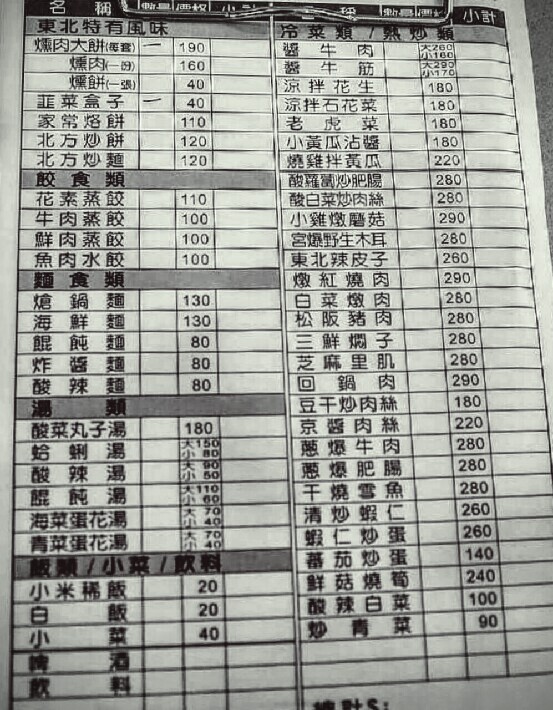 名稱 數量 價格 小計
東北特有風味
燻肉大餅(每套) 一 190
燻肉(一份) 160
燻餅(一張) 40
韮菜盒子 一 40
家常烙餅 110
北方炒餅 120
北方炒麵 120
餃食類
花素蒸餃 110
牛肉蒸餃 100
鮮肉蒸餃 100
魚肉水餃 100
麵食類
熗鍋麵 130
海鮮麵 130
餛飩麵 80
炸醬麵 80
酸辣麵 80
湯類
酸菜丸子湯 180
蛤蜊湯 大150 小80
酸辣湯 大90 小50
餛飩湯 大110 小60
海菜蛋花湯 大70 小40
青菜蛋花湯 大70 小40
飯類/小菜/飲料
小米稀飯 20
白飯 20
小菜 40
啤酒
飲料
名稱 數量 價格 小計
冷菜類/熱炒類
醬牛肉 大260 小160
醬牛筋 大290 小170
涼拌花生 180
涼拌石花菜 180
老虎菜 180
小黃瓜沾醬 180
燒雞拌黃瓜 220
酸蘿蔔炒肥腸 280
酸白菜炒肉絲 280
小雞燉蘑菇 290
宮爆野生木耳 280
東北辣皮子 260
燉紅燒肉 290
白菜燉肉 280
松阪豬肉 280
三鮮燜子 280
芝麻里肌 280
回鍋肉 290
豆干炒肉絲 180
京醬肉絲 220
蔥爆牛肉 280
蔥爆肥腸 280
干燒雪魚 280
清炒蝦仁 260
蝦仁炒蛋 260
蕃茄炒蛋 140
鮮菇燒筍 240
酸辣白菜 100
炒青菜 90
總計$: